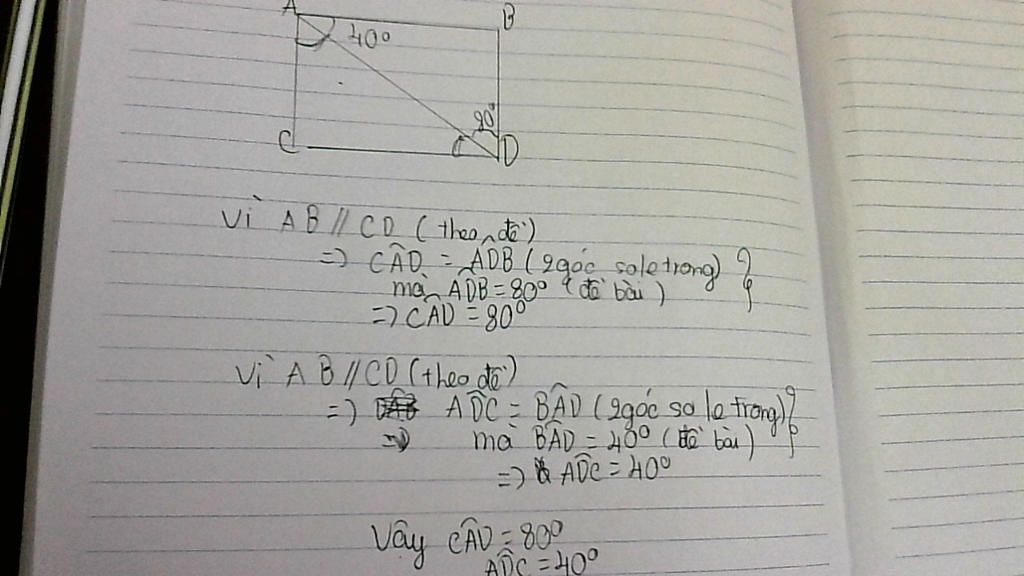 A B
40°
80°
C D
Vì AB // CD (theo đề)
=> CÂD = ADB (2góc so le trong)
mà ADB = 80° (đề bài)
=> CÂD = 80°
Vì AB // CD (theo đề)
=> ADC = BÂD (2góc so le trong)
=> mà BÂD = 40° (đề bài)
=> ADC = 40°
Vậy CÂD = 80°
ADC = 40°